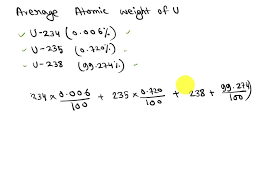 Average Atomic weight of U
✓ U-234 (0.006%) ✓
✓ U-235 (0.720%) ✓
✓ U-238 (99.274%) ✓
234 × 0.006/100 + 235 × 0.720/100 + 238 + 99.274/100)